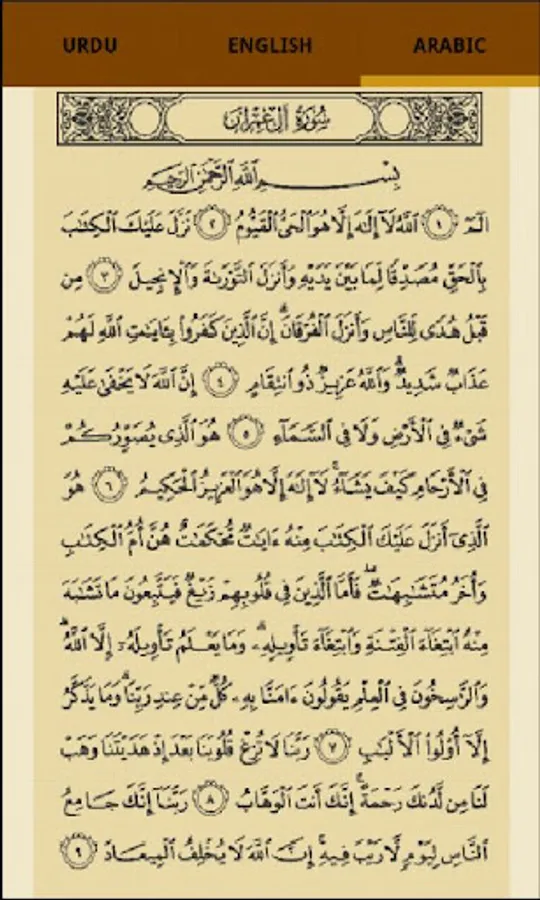 URDU ENGLISH ARABIC
سُورَةُ آلِ عِمْرَان
بِسْمِ ٱللَّهِ ٱلرَّحْمَٰنِ ٱلرَّحِيمِ
الٓمٓ ١ ٱللَّهُ لَآ إِلَٰهَ إِلَّا هُوَ ٱلْحَىُّ ٱلْقَيُّومُ ٢ نَزَّلَ عَلَيْكَ ٱلْكِتَٰبَ
بِٱلْحَقِّ مُصَدِّقًا لِّمَا بَيْنَ يَدَيْهِ وَأَنزَلَ ٱلتَّوْرَىٰةَ وَٱلْإِنجِيلَ ٣ مِن
قَبْلُ هُدًى لِّلنَّاسِ وَأَنزَلَ ٱلْفُرْقَانَۗ إِنَّ ٱلَّذِينَ كَفَرُوا۟ بِـَٔايَٰتِ ٱللَّهِ لَهُمْ
عَذَابٌ شَدِيدٌۗ وَٱللَّهُ عَزِيزٌ ذُو ٱنتِقَامٍ ٤ إِنَّ ٱللَّهَ لَا يَخْفَىٰ عَلَيْهِ
شَىْءٌ فِى ٱلْأَرْضِ وَلَا فِى ٱلسَّمَآءِ ٥ هُوَ ٱلَّذِى يُصَوِّرُكُمْ
فِى ٱلْأَرْحَامِ كَيْفَ يَشَآءُۚ لَآ إِلَٰهَ إِلَّا هُوَ ٱلْعَزِيزُ ٱلْحَكِيمُ ٦ هُوَ
ٱلَّذِىٓ أَنزَلَ عَلَيْكَ ٱلْكِتَٰبَ مِنْهُ ءَايَٰتٌ مُّحْكَمَٰتٌ هُنَّ أُمُّ ٱلْكِتَٰبِ
وَأُخَرُ مُتَشَٰبِهَٰتٌۖ فَأَمَّا ٱلَّذِينَ فِى قُلُوبِهِمْ زَيْغٌ فَيَتَّبِعُونَ مَا تَشَٰبَهَ
مِنْهُ ٱبْتِغَآءَ ٱلْفِتْنَةِ وَٱبْتِغَآءَ تَأْوِيلِهِۦۗ وَمَا يَعْلَمُ تَأْوِيلَهُۥٓ إِلَّا ٱللَّهُۗ
وَٱلرَّٰسِخُونَ فِى ٱلْعِلْمِ يَقُولُونَ ءَامَنَّا بِهِۦ كُلٌّ مِّنْ عِندِ رَبِّنَاۗ وَمَا يَذَّكَّرُ
إِلَّآ أُو۟لُوا۟ ٱلْأَلْبَٰبِ ٧ رَبَّنَا لَا تُزِغْ قُلُوبَنَا بَعْدَ إِذْ هَدَيْتَنَا وَهَبْ
لَنَا مِن لَّدُنكَ رَحْمَةًۚ إِنَّكَ أَنتَ ٱلْوَهَّابُ ٨ رَبَّنَآ إِنَّكَ جَامِعُ
ٱلنَّاسِ لِيَوْمٍ لَّا رَيْبَ فِيهِۚ إِنَّ ٱللَّهَ لَا يُخْلِفُ ٱلْمِيعَادَ ٩